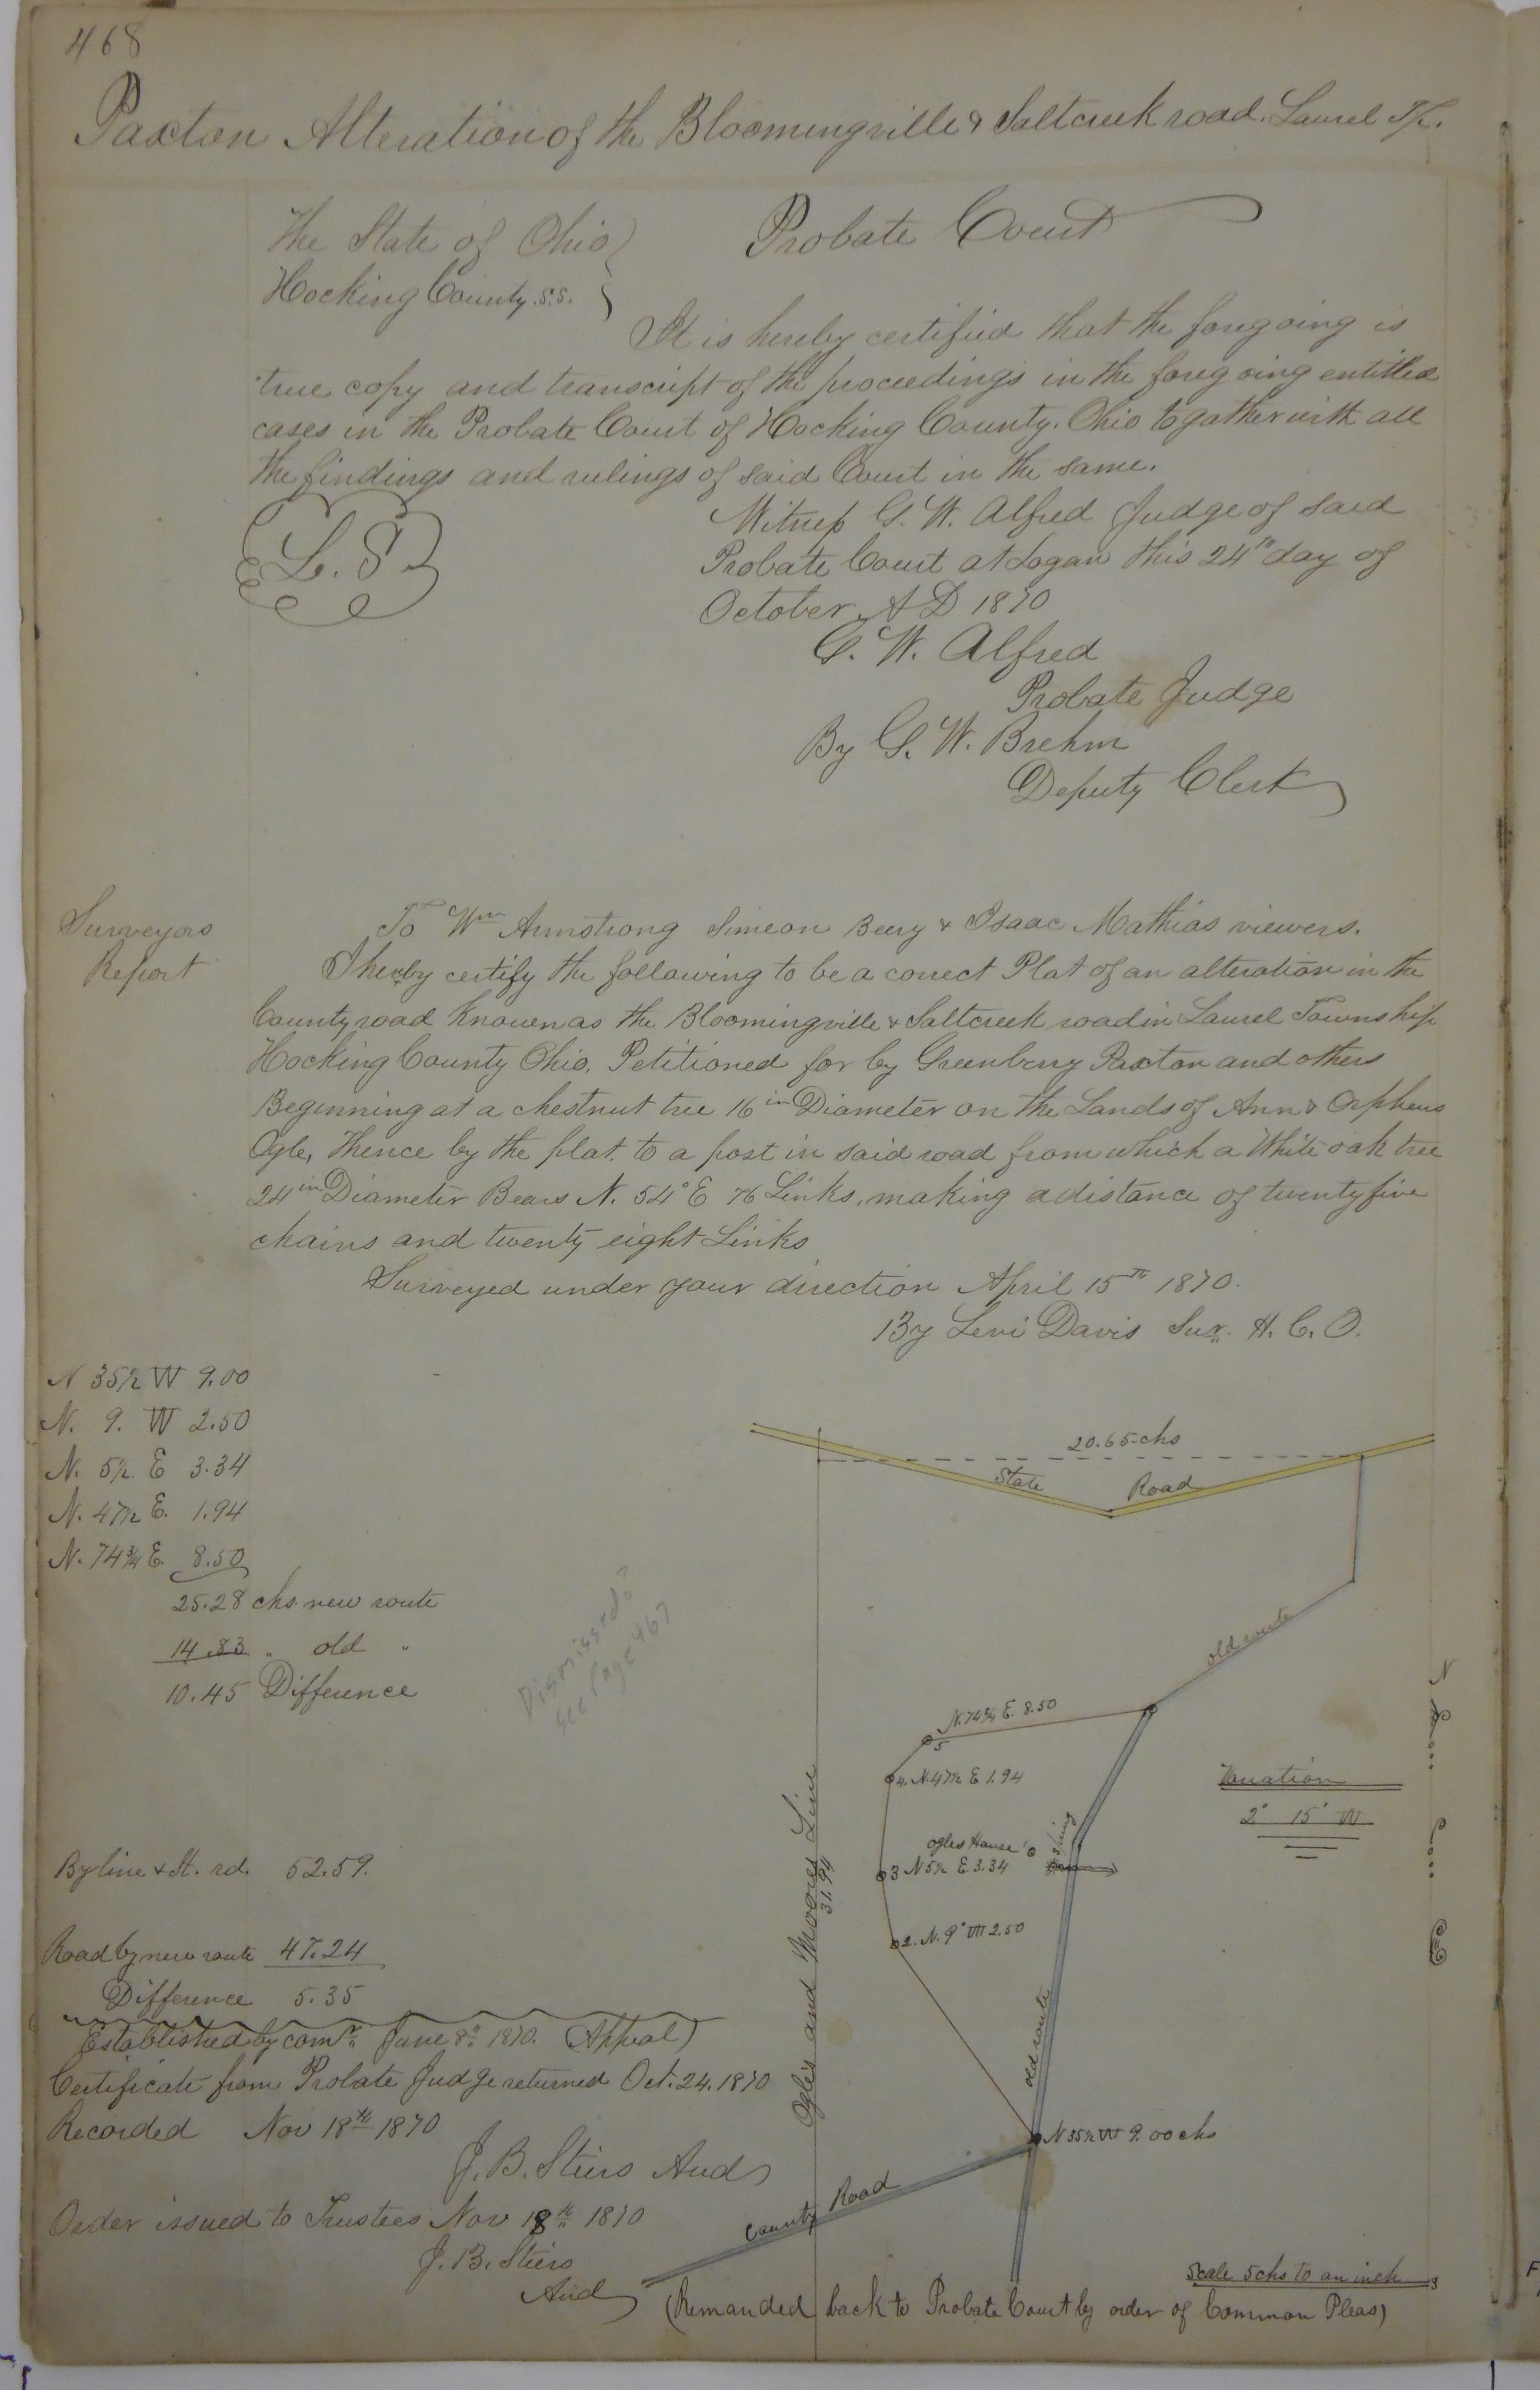 468
Paxton Alteration of the Bloomingville & Saltcreek road. Laurel Tp.
The State of Ohio
Hocking County. S.S.
Probate Court
It is hereby certified that the foregoing is
true copy and transcript of the proceedings in the foregoing entitled
cases in the Probate Court of Hocking County. Ohio togather with all
the findings and rulings of said Court in the same.
L.S.
Witness G. W. Alfred Judge of said
Probate Court at Logan this 24th day of
October A D 1870
G. W. Alfred
Probate Judge
By G. W. Brehm
Deputy Clerk
Surveyors
Report
To Wm Armstrong Simeon Beery & Isaac Mathias viewers.
I hereby certify the following to be a correct Plat of an alteration in the
County road Known as the Bloomingville & Saltcreek road in Laurel Township
Hocking County Ohio. Petitioned for by Greenberry Paxton and others
Beginning at a chestnut tree 16 in Diameter on the Lands of Ann & Orpheus
Ogle, Thence by the plat. to a post in said road from which a White oak tree
24 in Diameter Bears N. 54° E 76 Links, making a distance of twenty five
chains and twenty eight Links
Surveyed under your direction April 15th 1870.
By Levi Davis Sur. H. C. O.
N 35½ W 9.00
N. 9. W 2.50
N. 5½ E 3.34
N. 47½ E. 1.94
N. 74¾ E. 8.50
25.28 chs new route
14.83 " old "
10.45 Difference
Dismissed?
See Page 467
20.65 chs
State Road
old route
N. 74¾ E. 8.50
5
4. N. 47½ E 1.94
Ogles House
3 N 5½ E. 3.34
2. N. 9° W 2.50
Ogles and Moores Line
31.94
old route
N 35½ W 9.00 chs
County Road
Variation
2° 15' W
By line & St. rd. 52.59.
Road by new route 47.24
Difference 5.35
Established by comrs June 8th 1870. (Appeal)
Certificate from Probate Judge returned Oct. 24. 1870
Recorded Nov 18th 1870
J. B. Stiers Aud
Order issued to Trustees Nov 18th 1870
J. B. Stiers
Aud
Scale 5 chs to an inch
(Remanded back to Probate Court by order of Common Pleas)